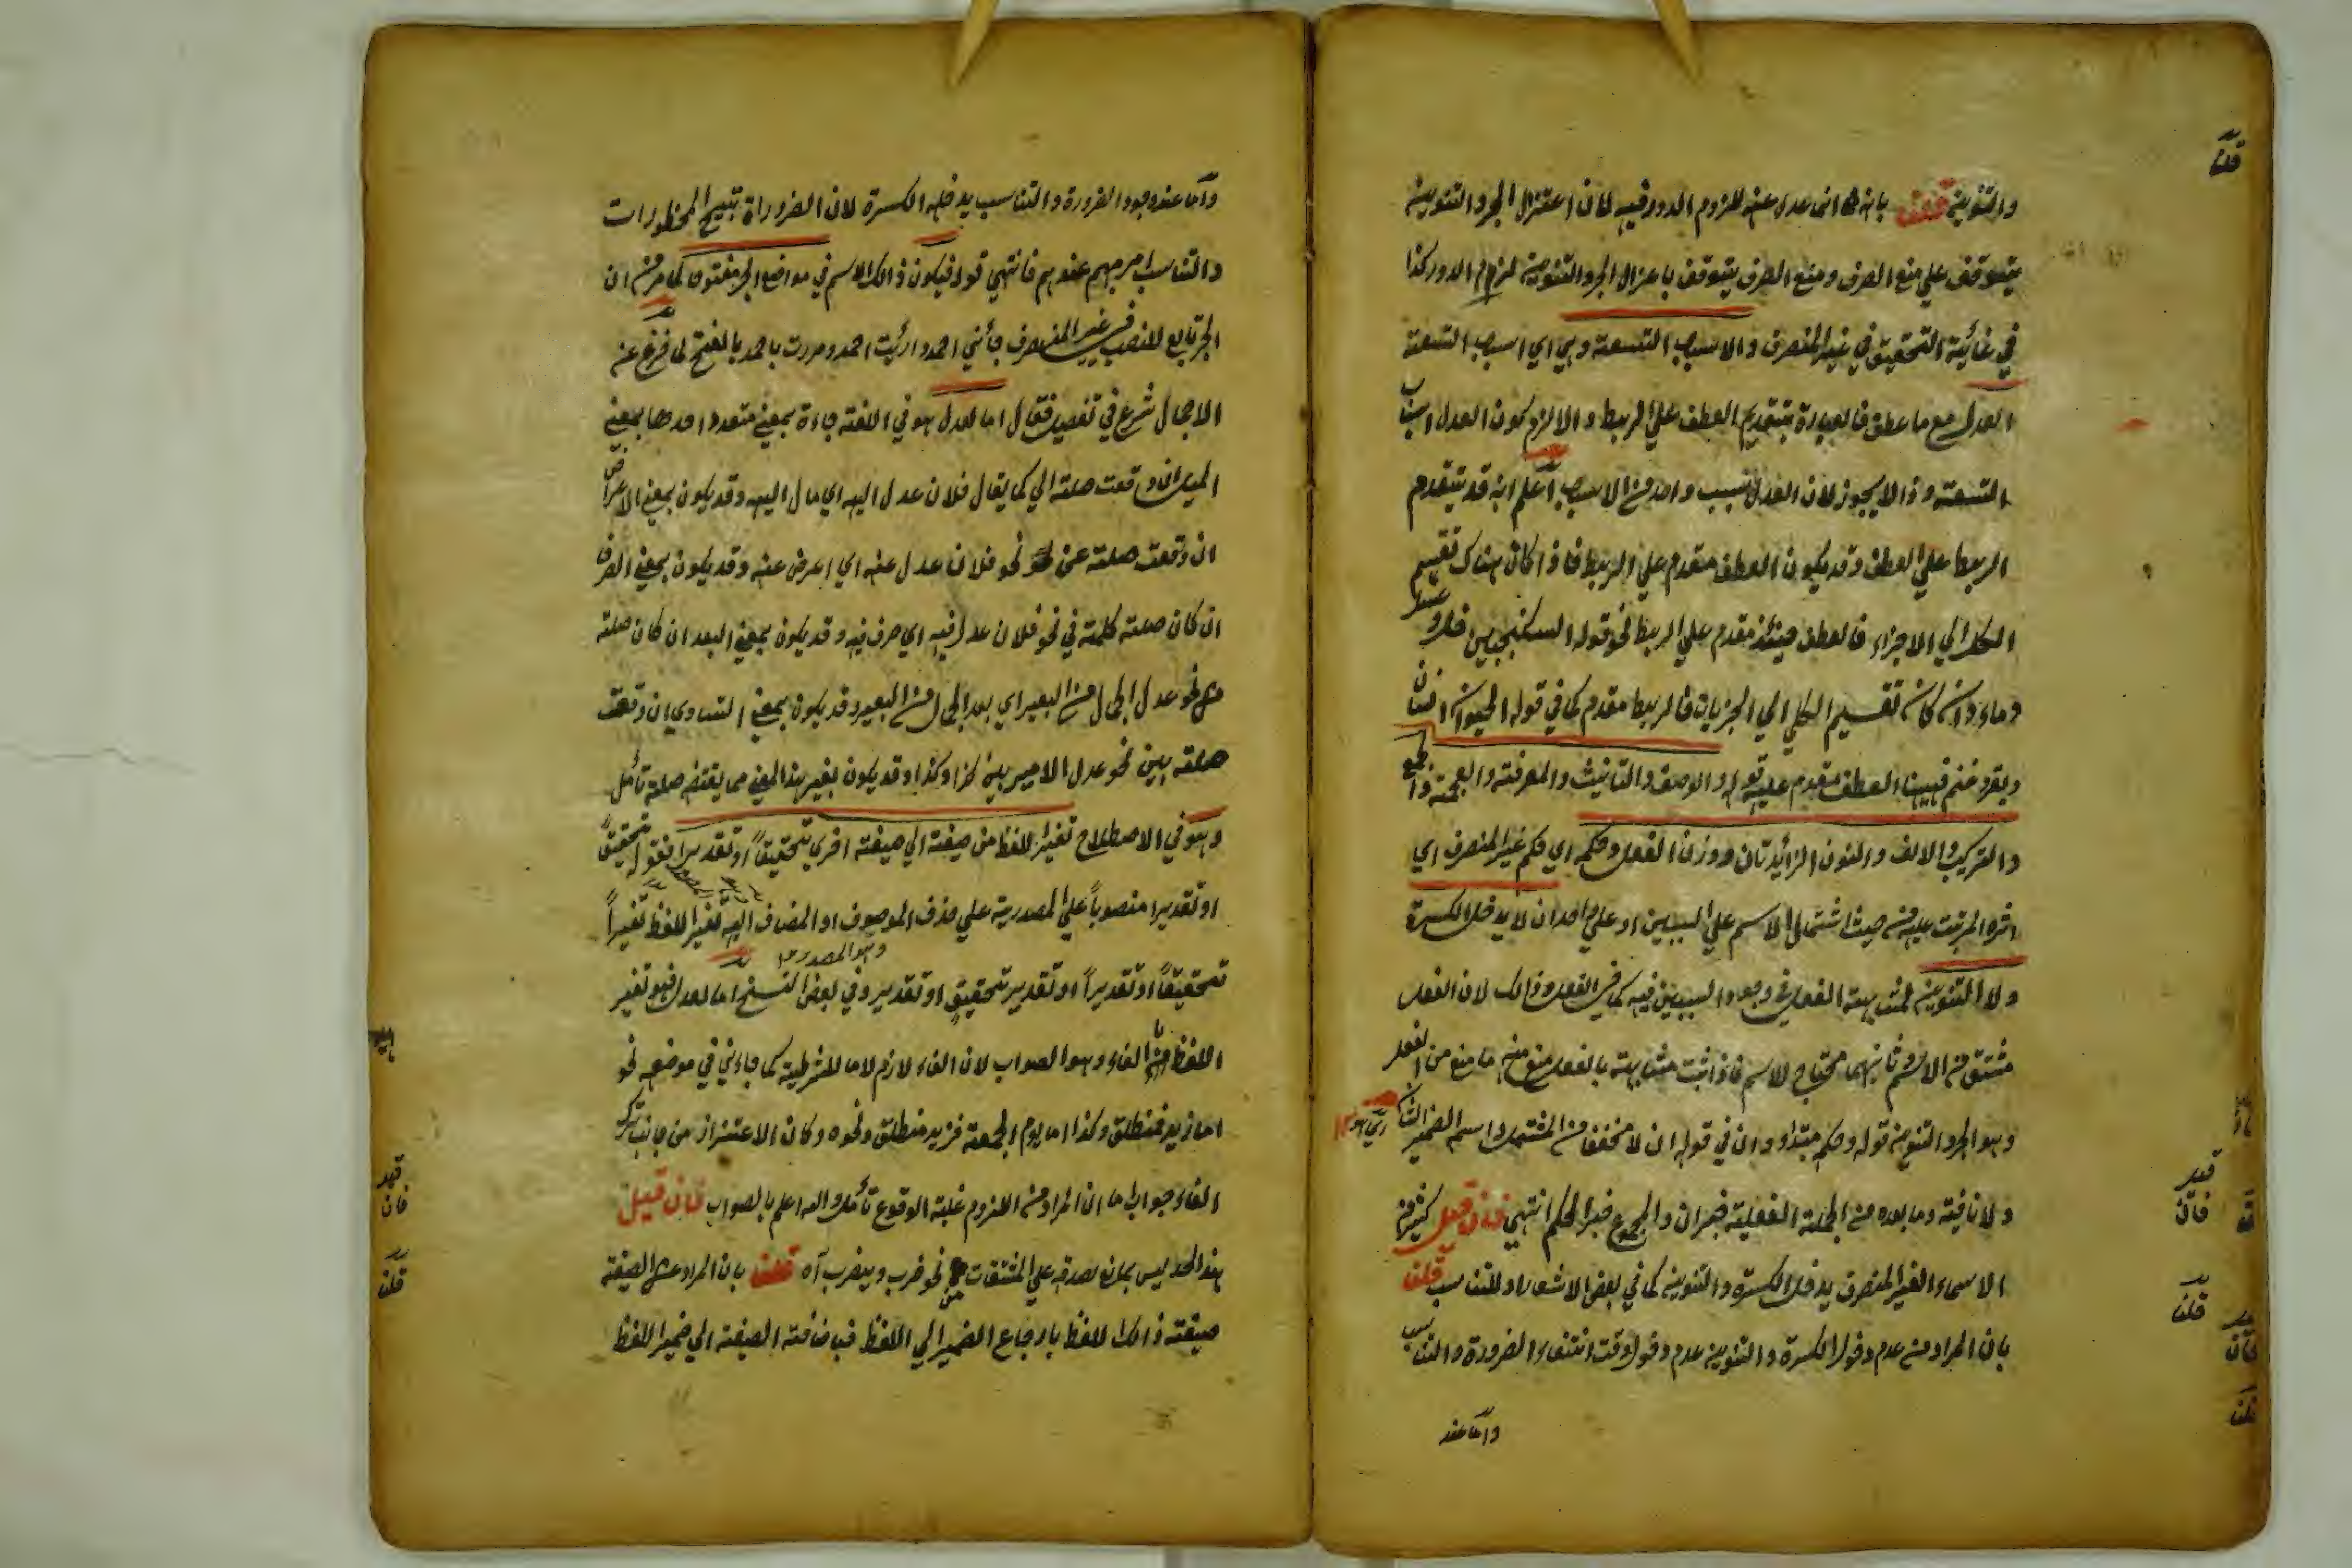 والتنوين قلنا بانه انما عدل عنه للزوم الدور فيه لان اعتزال الجر والتنوين
يتوقف على منع الصرف ومنع الصرف يتوقف باعزال الجر والتنوين لزوم الدور كذا
في غائية التحقيق في غير المنصرف والاسباب التسعة وهي اي اسباب التسعة
العدل مع ما عطف فالعبارة بتقديم العطف علي الربط والا لزم كون العدل اسباب
التسعة وذا لا يجوز لان العدل سبب واحد من الاسباب اعلم انه قد يتقدم
الربط علي العطف وقد يكون العطف مقدم علي الربط فاذا كان هناك تقسيم
الكل الي الاجزاء فالعطف حينئذ مقدم علي الربط نحو قوله السكنجبين خل وعسل
وماء وان كان تقسيم الكلي الي الجزيات فالربط مقدم كما في قوله الحيوان انسان
وبقر وغنم فههنا العطف مقدم عليه قوله والوصف والتانيث والمعرفة والعجمة والجمع
والتركيب والالف والنون الزائدتان ووزن الفعل وحكمه اي حكم غير المنصرف اي
اثره المرتب عليه من حيث اشتمال الاسم علي السببين او علي واحد ان لا يدخل الكسرة
ولا التنوين لمشابهة الفعل في وجود السببين فيه كما في الفعل وذالك لان الفعل
مشتق من الاسم وثانيهما محتاج للاسم فاذا ثبت مشابهته بالفعل منع منه ما منع من الفعل
وهو الجر والتنوين قوله وحكمه مبتداء وان في قوله ان لا مخففا من المشتملة واسمه الضمير الشان
ولا نافية وما بعده من الجملة الفعلية خبر ان والمجموع خبر الحكم انتهي فان قيل كثيرا من
الاسماء الغير المنصرف يدخل الكسرة والتنوين كما في بعض الاشعار او للتناسب قلنا
بان المراد من عدم دخول الكسرة والتنوين عدم دخول وقت انتفاء الضرورة والتناسب
واما عند
قلنا
فان
قلنا
فان
قلنا
واما عند وجود الضرورة والتناسب يدخله الكسرة لان الضروراة تبيح المحظورات
والتناسب امر مهم عندهم فانتهي قوله فيكون ذالك الاسم في مواضع الجر مفتوحا كما مر من ان
الجر تابع للنصب في غير المنصرف جائني احمد وارئيت احمد ومررت باحمد بالفتح لما فرغ عنه
الاجمال شرع في تفصيله فقال اما العدل هو في اللغة جاءة بمعني متعدد احدها بمعني
الميل ان وقعت صلته الي كما يقال فلان عدل اليه اي مال اليه وقد يكون بمعني الاعراض
ان وقعت صلته عن نحو فلان عدل عنه اي اعرض عنه وقد يكون بمعني الصرف
ان كان صلته كلمة في نحو فلان عدل فيه اي صرف فيه وقد يكون بمعني البعد ان كان صلته
من نحو عدل الجمال من البعير اي بعد الجمال من البعير وقد يكون بمعني التساوي ان وقعت
صلته بين نحو عدل الامير بين كذا وكذا وقد يكون بغير هذا المعني مما يقتضي صلة تأمل
وهو في الاصطلاح تغير اللفظ من صيغة الي صيغة اخري تحقيقا او تقديرا فقوله تحقيقا
او تقديرا منصوبا علي المصدرية علي حذف الموصوف او المضاف اليه تغير اللفظ تغيرا
وهو المصدر
تحقيقا او تقديرا او تقدير تحقيق او تقدير وفي بعض النسخ اما العدل فهو تغير
اللفظ بالفاء وهو الصواب لان الفاء لازم لاما الشرطية كما جاءني في موضعه نحو
اما زيد فمنطلق وكذا اما يوم الجمعة فزيد منطلق ونحوه وكان الاعتذار من جانب ترك
الفاء جواب اما ان المراد من اللزوم غلبة الوقوع تأمل والله اعلم بالصواب فان قيل
هذا الحد ليس بمانع لصدقه علي المشتقات نحو ضرب ويضرب آه قلنا بان المراد عن الصيغة
صيغة ذالك اللفظ بارجاع الضمير الي اللفظ فباضافة الصيغة الي ضمير اللفظ
فان
قلنا